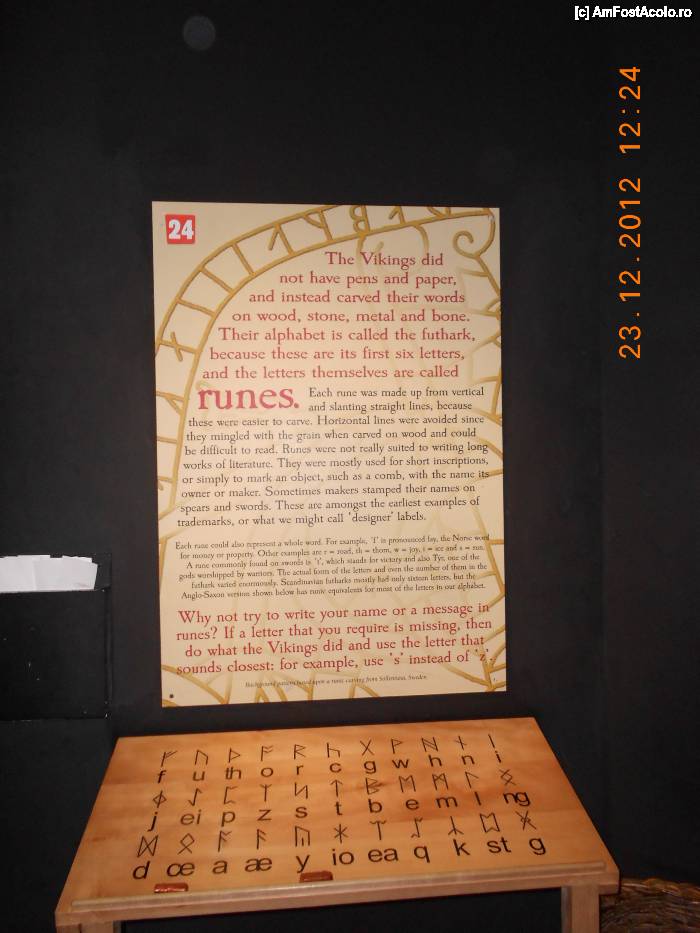 [c] AmFostAcolo.ro
23.12.2012 12:24
24
The Vikings did
not have pens and paper,
and instead carved their words
on wood, stone, metal and bone.
Their alphabet is called the futhark,
because these are its first six letters,
and the letters themselves are called
runes. Each rune was made up from vertical
and slanting straight lines, because
these were easier to carve. Horizontal lines were avoided since
they mingled with the grain when carved on wood and could
be difficult to read. Runes were not really suited to writing long
works of literature. They were mostly used for short inscriptions,
or simply to mark an object, such as a comb, with the name its
owner or maker. Sometimes makers stamped their names on
spears and swords. These are amongst the earliest examples of
trademarks, or what we might call 'designer' labels.
Each rune could also represent a whole word. For example, 'f' is pronounced fay, the Norse word
for money or property. Other examples are r = road, th = thorn, w = joy, i = ice and s = sun.
A rune commonly found on swords is 't', which stands for victory and also Tyr, one of the
gods worshipped by warriors. The actual form of the letters and even the number of them in the
futhark varied enormously. Scandinavian futharks mostly had only sixteen letters, but the
Anglo-Saxon version shown below has runic equivalents for most of the letters in our alphabet.
Why not try to write your name or a message in
runes? If a letter that you require is missing, then
do what the Vikings did and use the letter that
sounds closest: for example, use 's' instead of 'z'.
Background pattern based upon a runic carving from Sollentuna, Sweden.
ᚠ ᚢ ᚦ ᚩ ᚱ ᚳ ᚷ ᚹ ᚻ ᚾ ᛁ
f u th o r c g w h n i
ᛄ ᛇ ᛈ ᛉ ᛋ ᛏ ᛒ ᛖ ᛗ ᛚ ᛝ
j ei p z s t b e m l ng
ᛞ ᛟ ᚪ ᚫ ᚣ ᛡ ᛠ ᛢ ᛣ ᛥ ᚸ
d œ a æ y io ea q k st g